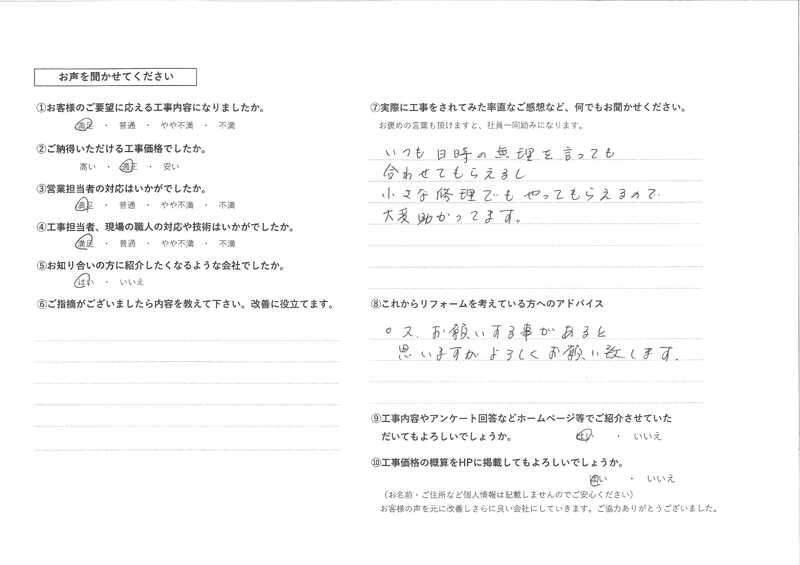 お声を聞かせてください
①お客様のご要望に応える工事内容になりましたか。
満足 ・ 普通 ・ やや不満 ・ 不満
②ご納得いただける工事価格でしたか。
高い ・ 適正 ・ 安い
③営業担当者の対応はいかがでしたか。
満足 ・ 普通 ・ やや不満 ・ 不満
④工事担当者、現場の職人の対応や技術はいかがでしたか。
満足 ・ 普通 ・ やや不満 ・ 不満
⑤お知り合いの方に紹介したくなるような会社でしたか。
はい ・ いいえ
⑥ご指摘がございましたら内容を教えて下さい。改善に役立てます。
⑦実際に工事をされてみた率直なご感想など、何でもお聞かせください。
お褒めの言葉も頂けますと、社員一同励みになります。
いつも日時の無理を言っても
合わせてもらえるし
小さな修理でもやってもらえるので
大変助かってます。
⑧これからリフォームを考えている方へのアドバイス
○又、お願いする事があると
思いますがよろしくお願い致します。
⑨工事内容やアンケート回答などホームページ等でご紹介させていた
だいてもよろしいでしょうか。 はい ・ いいえ
⑩工事価格の概算をHPに掲載してもよろしいでしょうか。
はい ・ いいえ
（お名前・ご住所など個人情報は記載しませんのでご安心ください）
お客様の声を元に改善しさらに良い会社にしていきます。ご協力ありがとうございました。